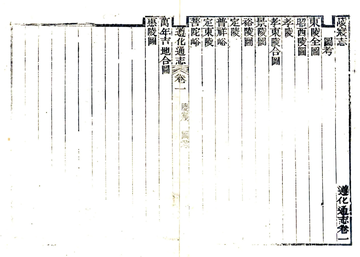 陵寢志
圖考
東陵全圖
昭西陵圖
孝陵
孝東陵合圖
景陵圖
裕陵圖
定陵
普祥峪
定東陵圖
普陀峪
遵化通志 卷一
萬年吉地合圖
惠陵圖
遵化通志卷一